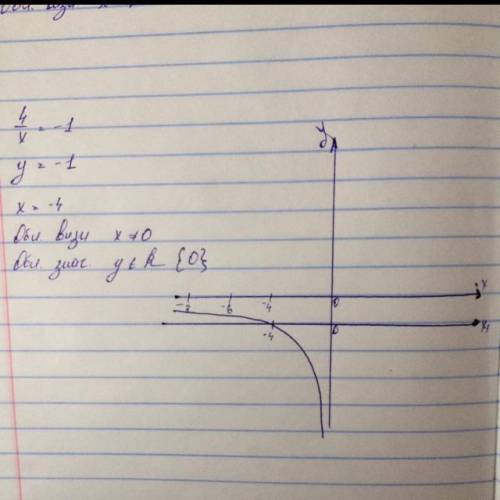 4/x = -1
y = -1
x = -4
Обл x ≠ 0
Обл знач. y ∈ R {0}
y
-8 -6 -4 0 x
-4 0 x